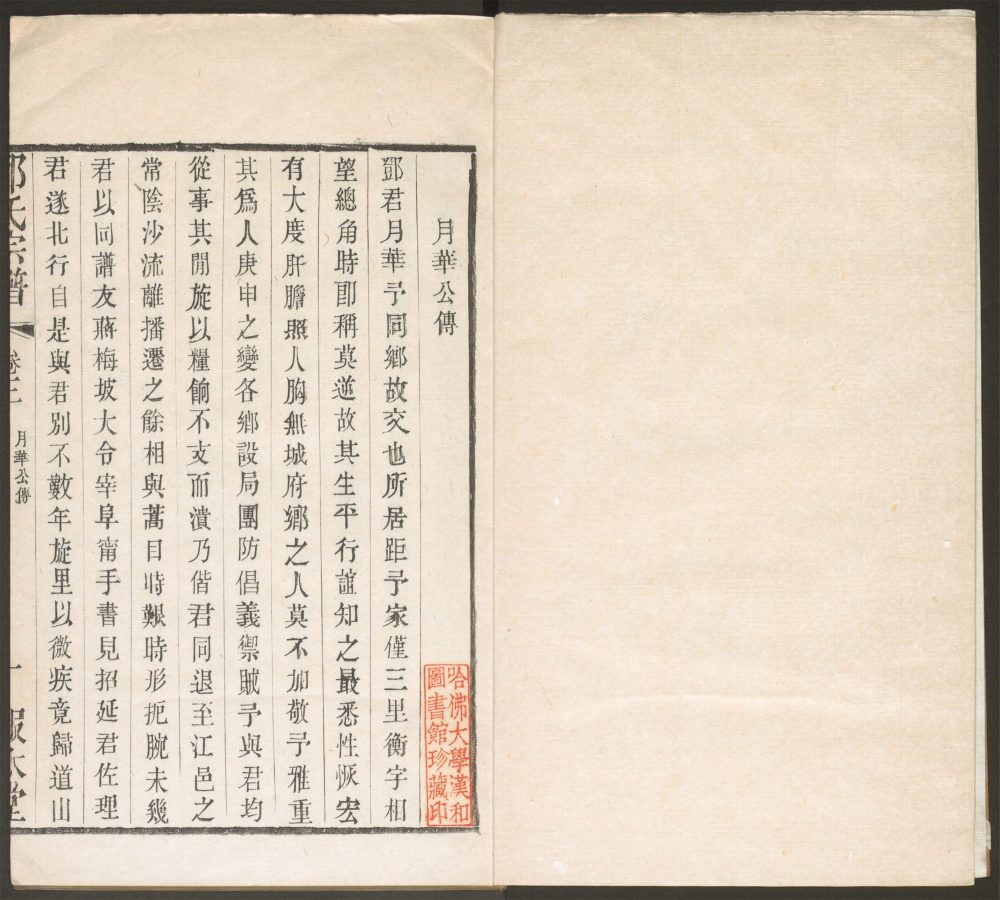 月華公傳
鄧君月華予同鄉故交也所居距予家僅三里衡宇相
望總角時即稱莫逆故其生平行誼知之最悉性恢宏
有大度肝膽照人胸無城府鄉之人莫不加敬予雅重
其爲人庚申之變各鄉設局團防倡義禦賊予與君均
從事其閒旋以糧餉不支而潰乃偕君同退至江邑之
常陰沙流離播遷之餘相與蒿目時艱時形扼腕未幾
君以同譜友蔣梅坡大令宰阜甯手書見招延君佐理
君遂北行自是與君別不數年旋里以微疾竟歸道山
氏宗譜
卷三
月華公傳
一
報本堂
哈佛大學漢和
圖書館珍藏印